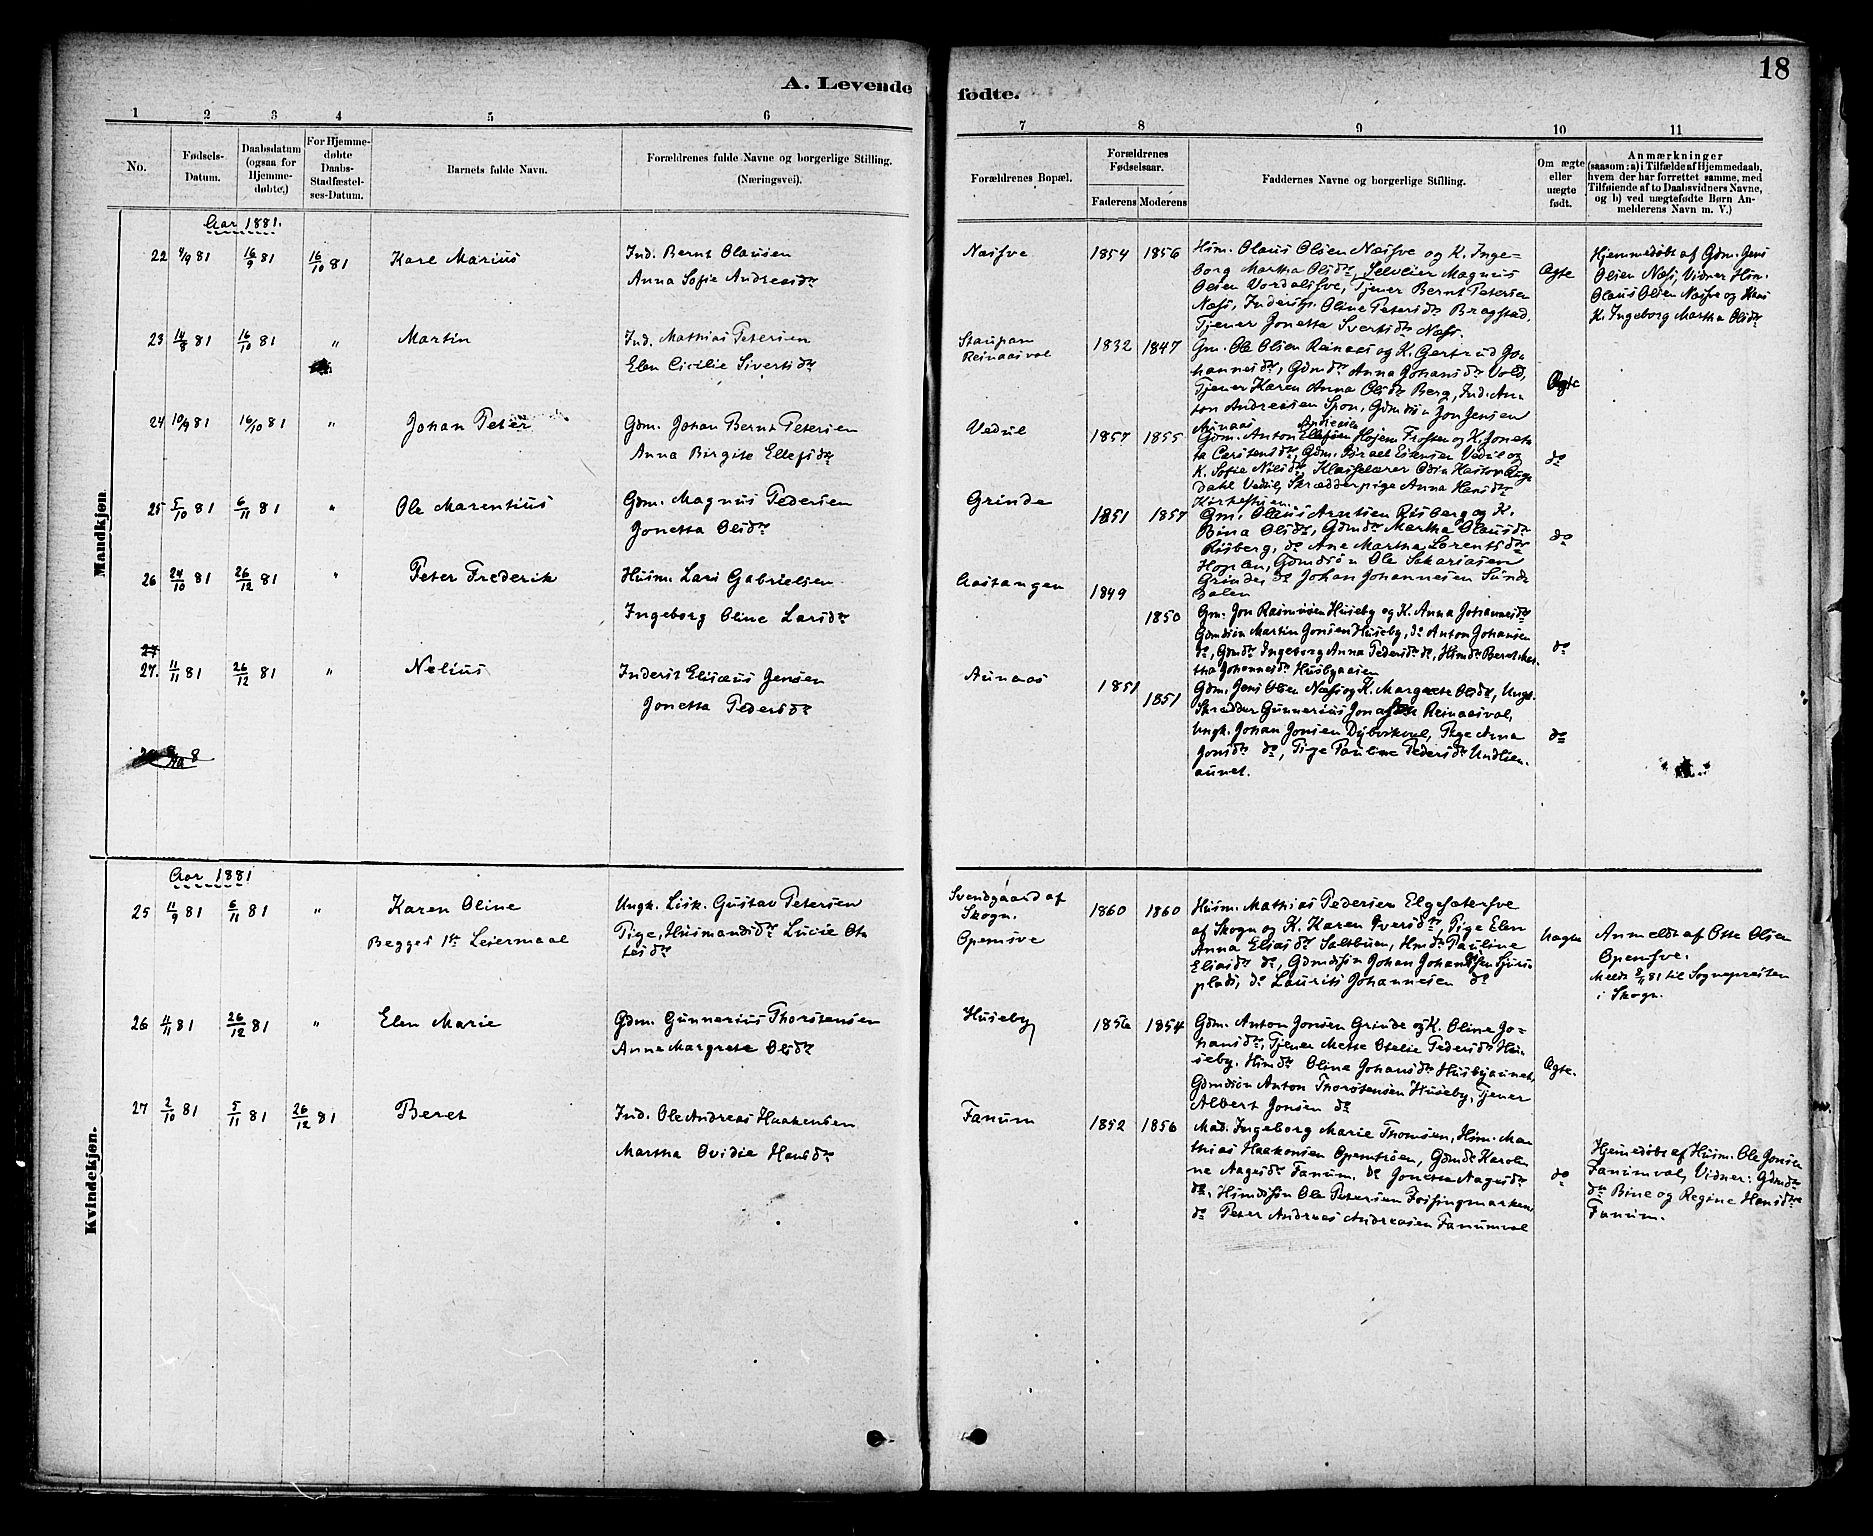 A. Levende fødte.
18
1 2 3 4 5 6 7 8 9 10 11
No.
Fødsels-
Datum.
Daabsdatum
(ogsaa for
Hjemme-
døbte.)
For Hjemme-
døbte
Daabs-
Stadfæstel-
ses-Datum.
Barnets fulde Navn.
Forældrenes fulde Navne og borgerlige Stilling.
(Næringsvei).
Forældrenes Bopæl.
Forældrenes
Fødselsaar.
Faderens Moderens
Faddernes Navne og borgerlige Stilling.
Om ægte
eller
uægte
født.
Anmærkninger
(saasom: a) i Tilfælde af Hjemmedaab,
hvem der har forrettet samme, med
Tilføiende af to Daabsvidners Navne,
og b) ved uægtefødte Børn An-
melderens Navn m. V.)
Mandkjøn
Aar 1881.
22 4/9 81 16/9 81 16/10 81 Karl Marius
Ind. Bernt Olausen
Anna Sofie Andreasdtr
Næsfve 1854 1856
Hsm. Olaus Olsen Næsfve og K. Inge-
borg Martha Olsdtr, Selveier Magnus
Olsen Vordalsfve, Tjener Bernt Petersen
Næss, Inderstp. Oline Petersdtr Bragstad,
Tjener Jonetta Svertsdtr Næss.
Ægte
Hjemmedøbt af Gdm. Jens
Olsen Næss, Vidner Hsm.
Olaus Olsen Næsfve og Hans
K. Ingeborg Martha Olsdtr
23 14/8 81 16/10 81 " Martin
Ind. Mathias Petersen
Elen Cicilie Sivertsdtr
Staupan
Reinaasval
1832 1847
Gm. Ole Olsen Reinaas og K. Gertrud Jo-
hannesdtr, Gdmdtr Anna Johansdtr Vold,
Tjener Karen Anna Olsdtr Berg, Ind. An-
ton Andreasen Spon, Gdmdsøn Jon Jensen
Aunaas
Ægte
24 10/9 81 16/10 81 " Johan Peter
Gdm. Johan Bernt Petersen
Anna Birgite Ellefsdtr
Vedul 1857 1855
Gdm. Anton Ellefsen Højem Frosten og K. Jonet-
ta Carstensdtr, Gdm. Israel Estensen Vedul og
K. Sofie Nilsdtr, Klasselærer Odin Hastor Auge
Dahl Vedul, Skrædderpige Anna Hansdtr
Kirkesteien
do
25 5/10 81 6/11 81 " Ole Marentius
Gdm. Magnus Pedersen
Jonetta Olsdtr
Grinde 1851 1857
Gm. Olaus Arntsen Risberg og K.
Bina Olsdtr, Gdmdtr Martha Olausdtr
Risberg, do Ane Martha Lorentsdtr
Hoplen, Gdmdsøn Ole Sakariasen
Grinde, do Johan Johannesen Sunde
Dalen
do
26 24/10 81 26/12 81 " Peter Frederik
Husm. Lars Gabrielsen
Ingeborg Oline Larsdtr
Aastangen 1849 1850
Gm. Jon Rasmusen Huseby og K. Anna Johannesdtr
Gdmdsøn Martin Jonsen Huseby, do Anton Johansen
do, Gdmdtr Ingeborg Anna Pedersdtr do, Hsmdtr Beret Mar-
tha Johannesdtr Husbyaasen
do
27. 11/11 81 26/12 81 " Nelius
Inderst Elisæus Jensen
Jonetta Pedersdtr
Aunaas 1851 1851
Gdm. Jens Olsen Næss og K. Margrete Olsdtr, Ungk.
Skrædder Gunnerius Jonassen Reinaasval,
Ungk. Johan Jonsen Dybvikval, Pige Anna
Jonsdtr do, Pige Pauline Pedersdtr Undlien-
aunet.
do
Kvindekjøn.
Aar 1881
25 11/9 81 6/11 81 " Karen Oline
Begges 1ste Leiermaal
Ungk. Lisk. Gustav Petersen
Pige, Husmandsdtr Lucie Ot-
tesdtr
Svendgaard af
Skogn.
Openfve
1860 1860
Husm. Mathias Pedersen Elgesæterfve
af Skogn og K. Karen Iversdtr, Pige Elen
Anna Eliasdtr Saltbuen, Hmdtr Pauline
Eliasdtr do, Gdmdsøn Johan Johannesen Sjurs-
plads, do Laurits Johannesen do
Uægte
Anmeldt af Otte Olsen
Openfve.
Meldt 8/11 81 til Sognepræsten
i Skogn.
26 11/11 81 26/12 81 " Elen Marie
Gdm. Gunnerius Thorstensen
Anne Margrete Olsdtr
Huseby 1856 1854
Gdm. Anton Jonsen Grinde og K. Oline Jo-
hansdtr, Tjener Mette Otelie Pedersdtr Hu-
seby. Hsmdtr Oline Johansdtr Husbyaunet,
Gdmdsøn Anton Thorstensen Huseby, Tjener
Albert Jonsen do
Ægte.
27 2/10 81 5/11 81 26/12 81 Beret
Ind. Ole Andreas Haakensen
Martha Ovidie Hansdtr
Fanum 1852 1856
Mad. Ingeborg Marie Thomsen, Hsm. Mat-
thias Haakonsen Opemtrøen, Gdmdtr Karolin-
ne Aagesdtr Fanum. do Jonetta Aagesdtr
do, Hsmdsøn Ole Petersen Fossingmarken,
do Peter Andreas Andreasen Fanumval
do
Hjemmedøbt af Husm. Ole Jonsen
Fanumval, Vidner: Gdmdtr
do Bine og Regine Hansdtre
Fanum.